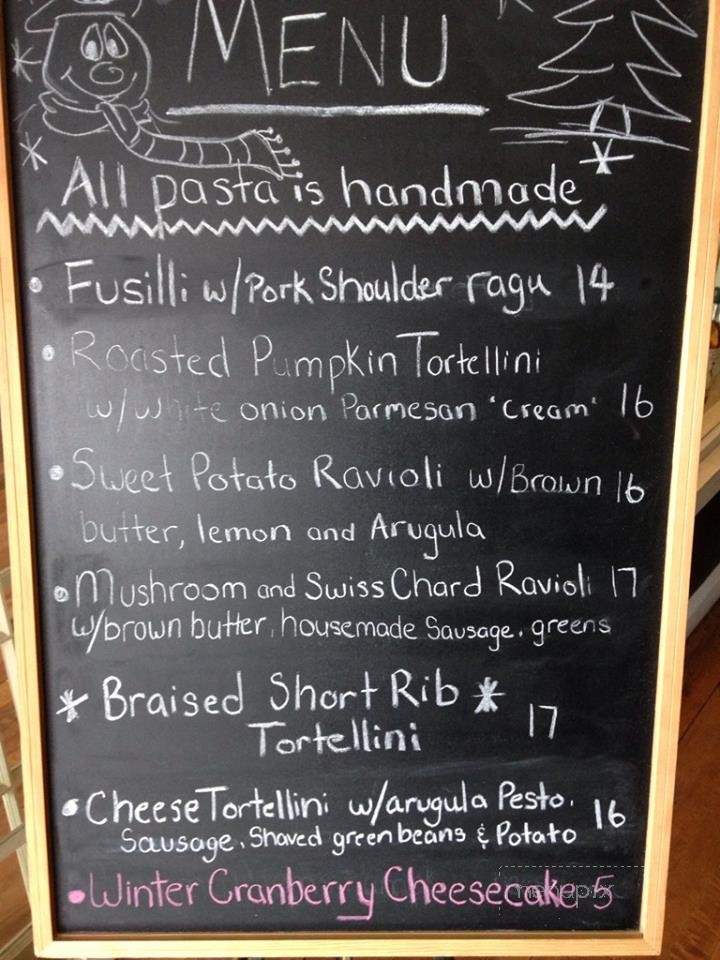 MENU
All pasta is handmade
• Fusilli w/Pork Shoulder ragu 14
• Roasted Pumpkin Tortellini
w/White onion Parmesan "Cream" 16
• Sweet Potato Ravioli w/Brown 16
butter, lemon and Arugula
• Mushroom and Swiss Chard Ravioli 17
w/brown butter, housemade Sausage, greens
* Braised Short Rib *
Tortellini 17
• Cheese Tortellini w/arugula Pesto, 16
Sausage, Shaved green beans & Potato
• Winter Cranberry Cheesecake 5
menupix